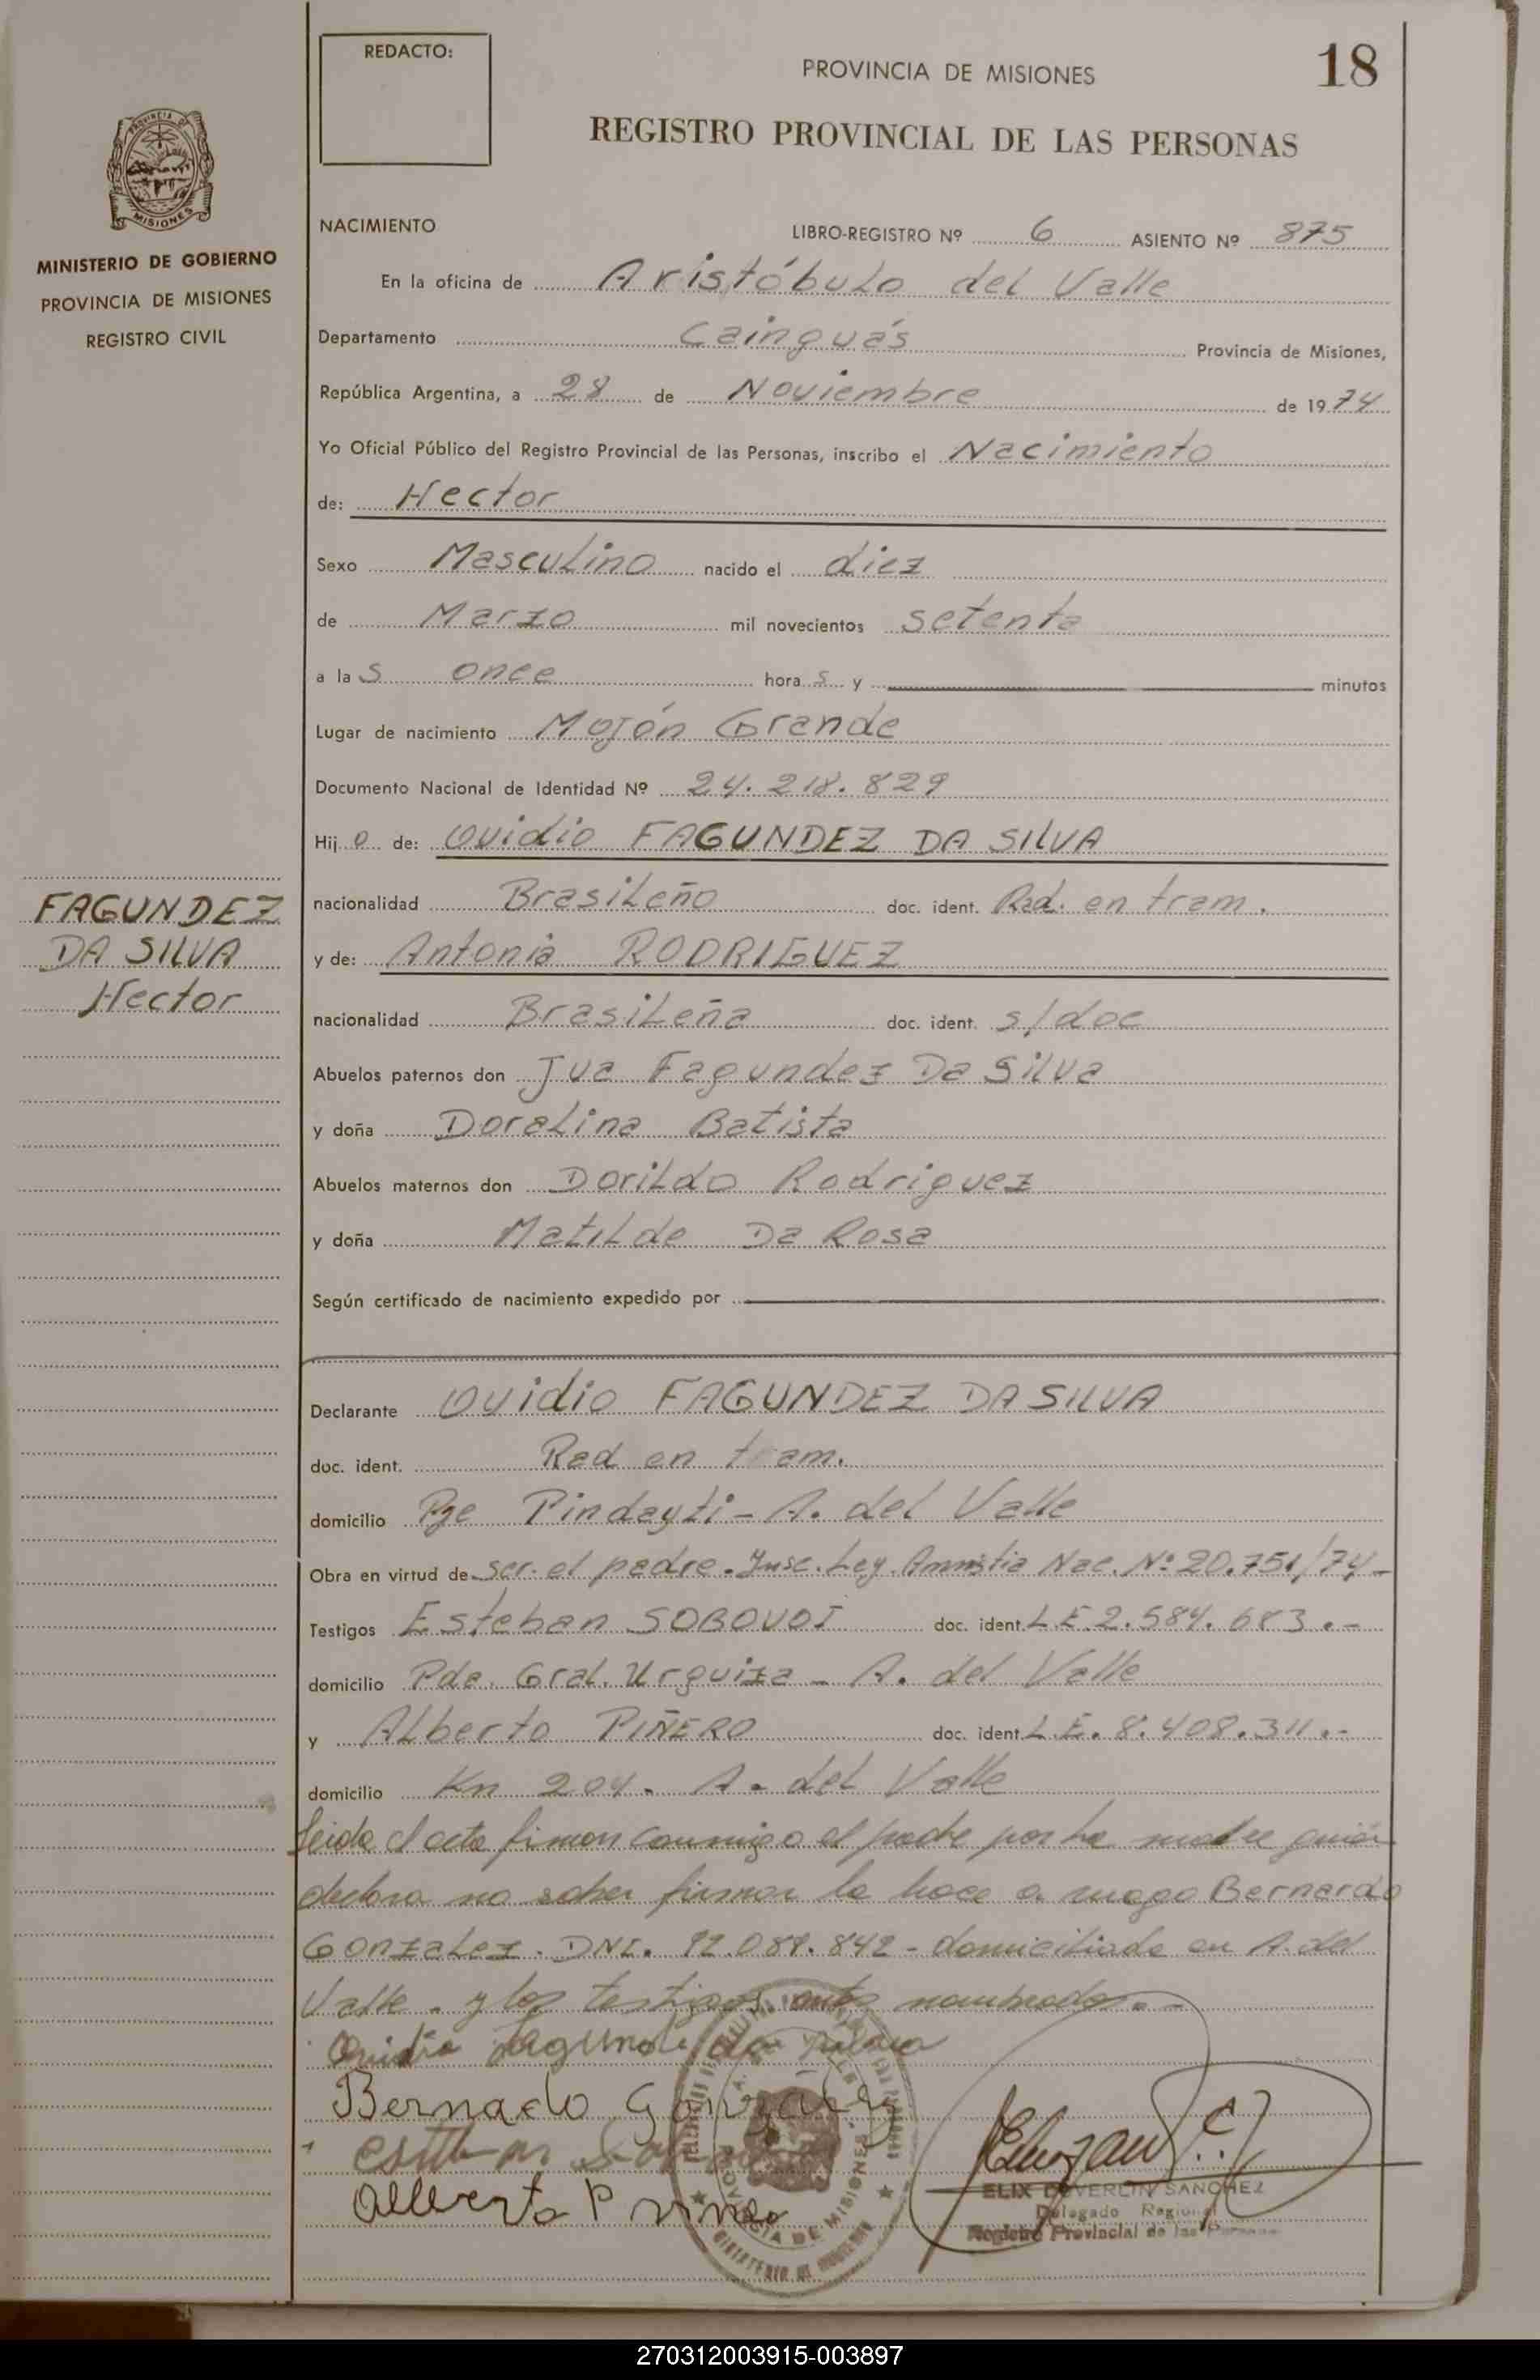 REDACTO:
PROVINCIA DE MISIONES
18
REGISTRO PROVINCIAL DE LAS PERSONAS
MISIONES
MINISTERIO DE GOBIERNO
PROVINCIA DE MISIONES
REGISTRO CIVIL
NACIMIENTO
LIBRO-REGISTRO Nº 6 ASIENTO Nº 875
En la oficina de Aristóbulo del Valle
Departamento Cainguás Provincia de Misiones,
República Argentina, a 28 de Noviembre de 1974
Yo Oficial Público del Registro Provincial de las Personas, inscribo el Nacimiento
de: Hector
Sexo Masculino nacido el diez
de Marzo mil novecientos setenta
a las once horas y minutos
Lugar de nacimiento Mojón Grande
Documento Nacional de Identidad Nº 24.218.829
Hijo de: Ovidio FAGUNDEZ DA SILVA
nacionalidad Brasileño doc. ident. Rad. en tram.
FAGUNDEZ
DA SILVA
Hector
y de: Antonia RODRIGUEZ
nacionalidad Brasileña doc. ident. s/doc
Abuelos paternos don Jua Fagundez Da Silva
y doña Doralina Batista
Abuelos maternos don Dorildo Rodriguez
y doña Matilde Da Rosa
Según certificado de nacimiento expedido por
Declarante Ovidio FAGUNDEZ DA SILVA
doc. ident. Rad en tram.
domicilio Pje Pindayti - A. del Valle
Obra en virtud de ser el padre. Insc. Ley. Amnistia Nac. Nº 20.751/74-
Testigos Esteban SOBOVOI doc. ident. L.E. 2.584.683.-
domicilio Pde. Gral. Urquiza - A. del Valle
y Alberto PIÑERO doc. ident. L.E. 8.408.311.-
domicilio Km 204. A. del Valle
Leida el acta firman conmigo el padre por la madre quien
declara no saber firmar lo hace a ruego Bernardo
Gonzalez. DNI. 12.087.842 - domiciliado en A. del
Valle. y los testigos antes nombrados.-
Ovidio Fagunde da silva
Bernardo Gonzalez
Esteban
Alberto Piñero
ELIX DEVERLIN SANCHEZ
Delegado Regional
Registro Provincial de las Personas
PROVINCIA DE MISIONES
270312003915-003897